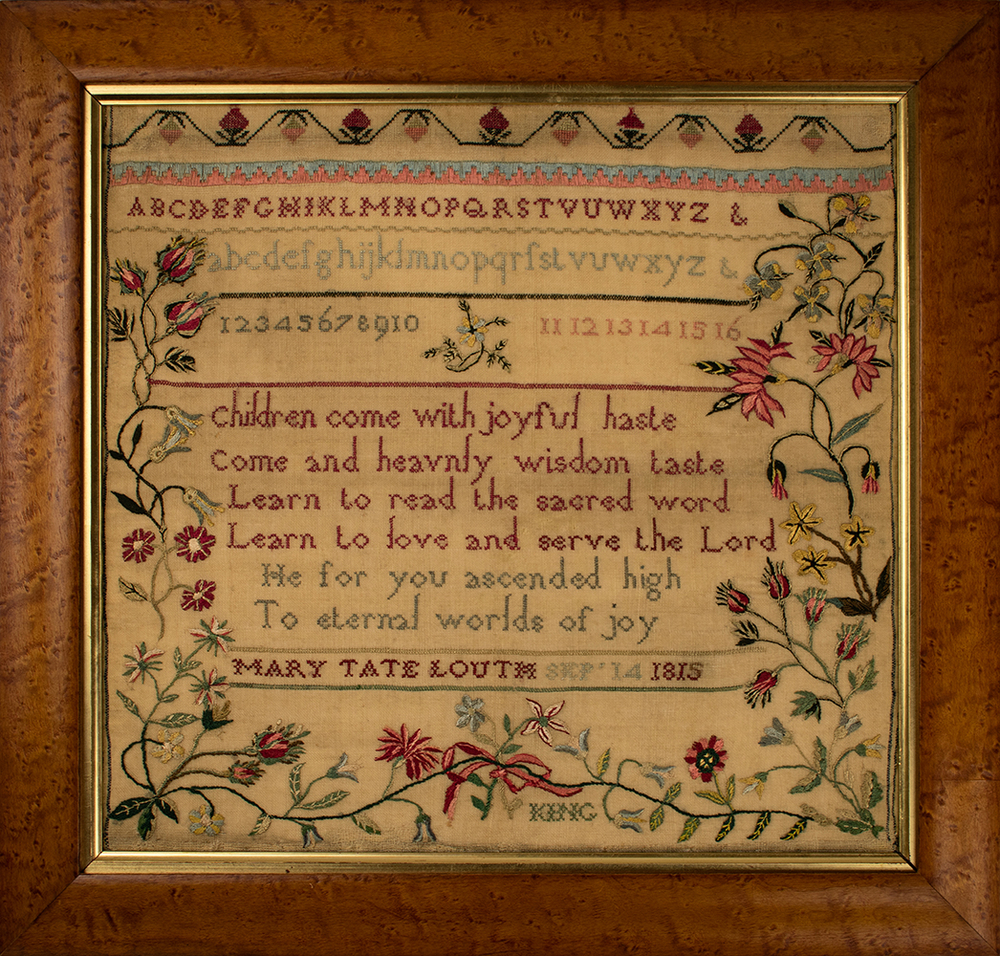 ABCDEFGHIKLMNOPQRSTVUWXYZ &
abcdefghijklmnopqrſstvuwxyz &
12345678910 11 12 13 14 15 16
Children come with joyful haste
Come and heavnly wisdom taste
Learn to read the sacred word
Learn to love and serve the Lord
He for you ascended high
To eternal worlds of joy
MARY TATE LOUTH SEP' 14 1815
KING